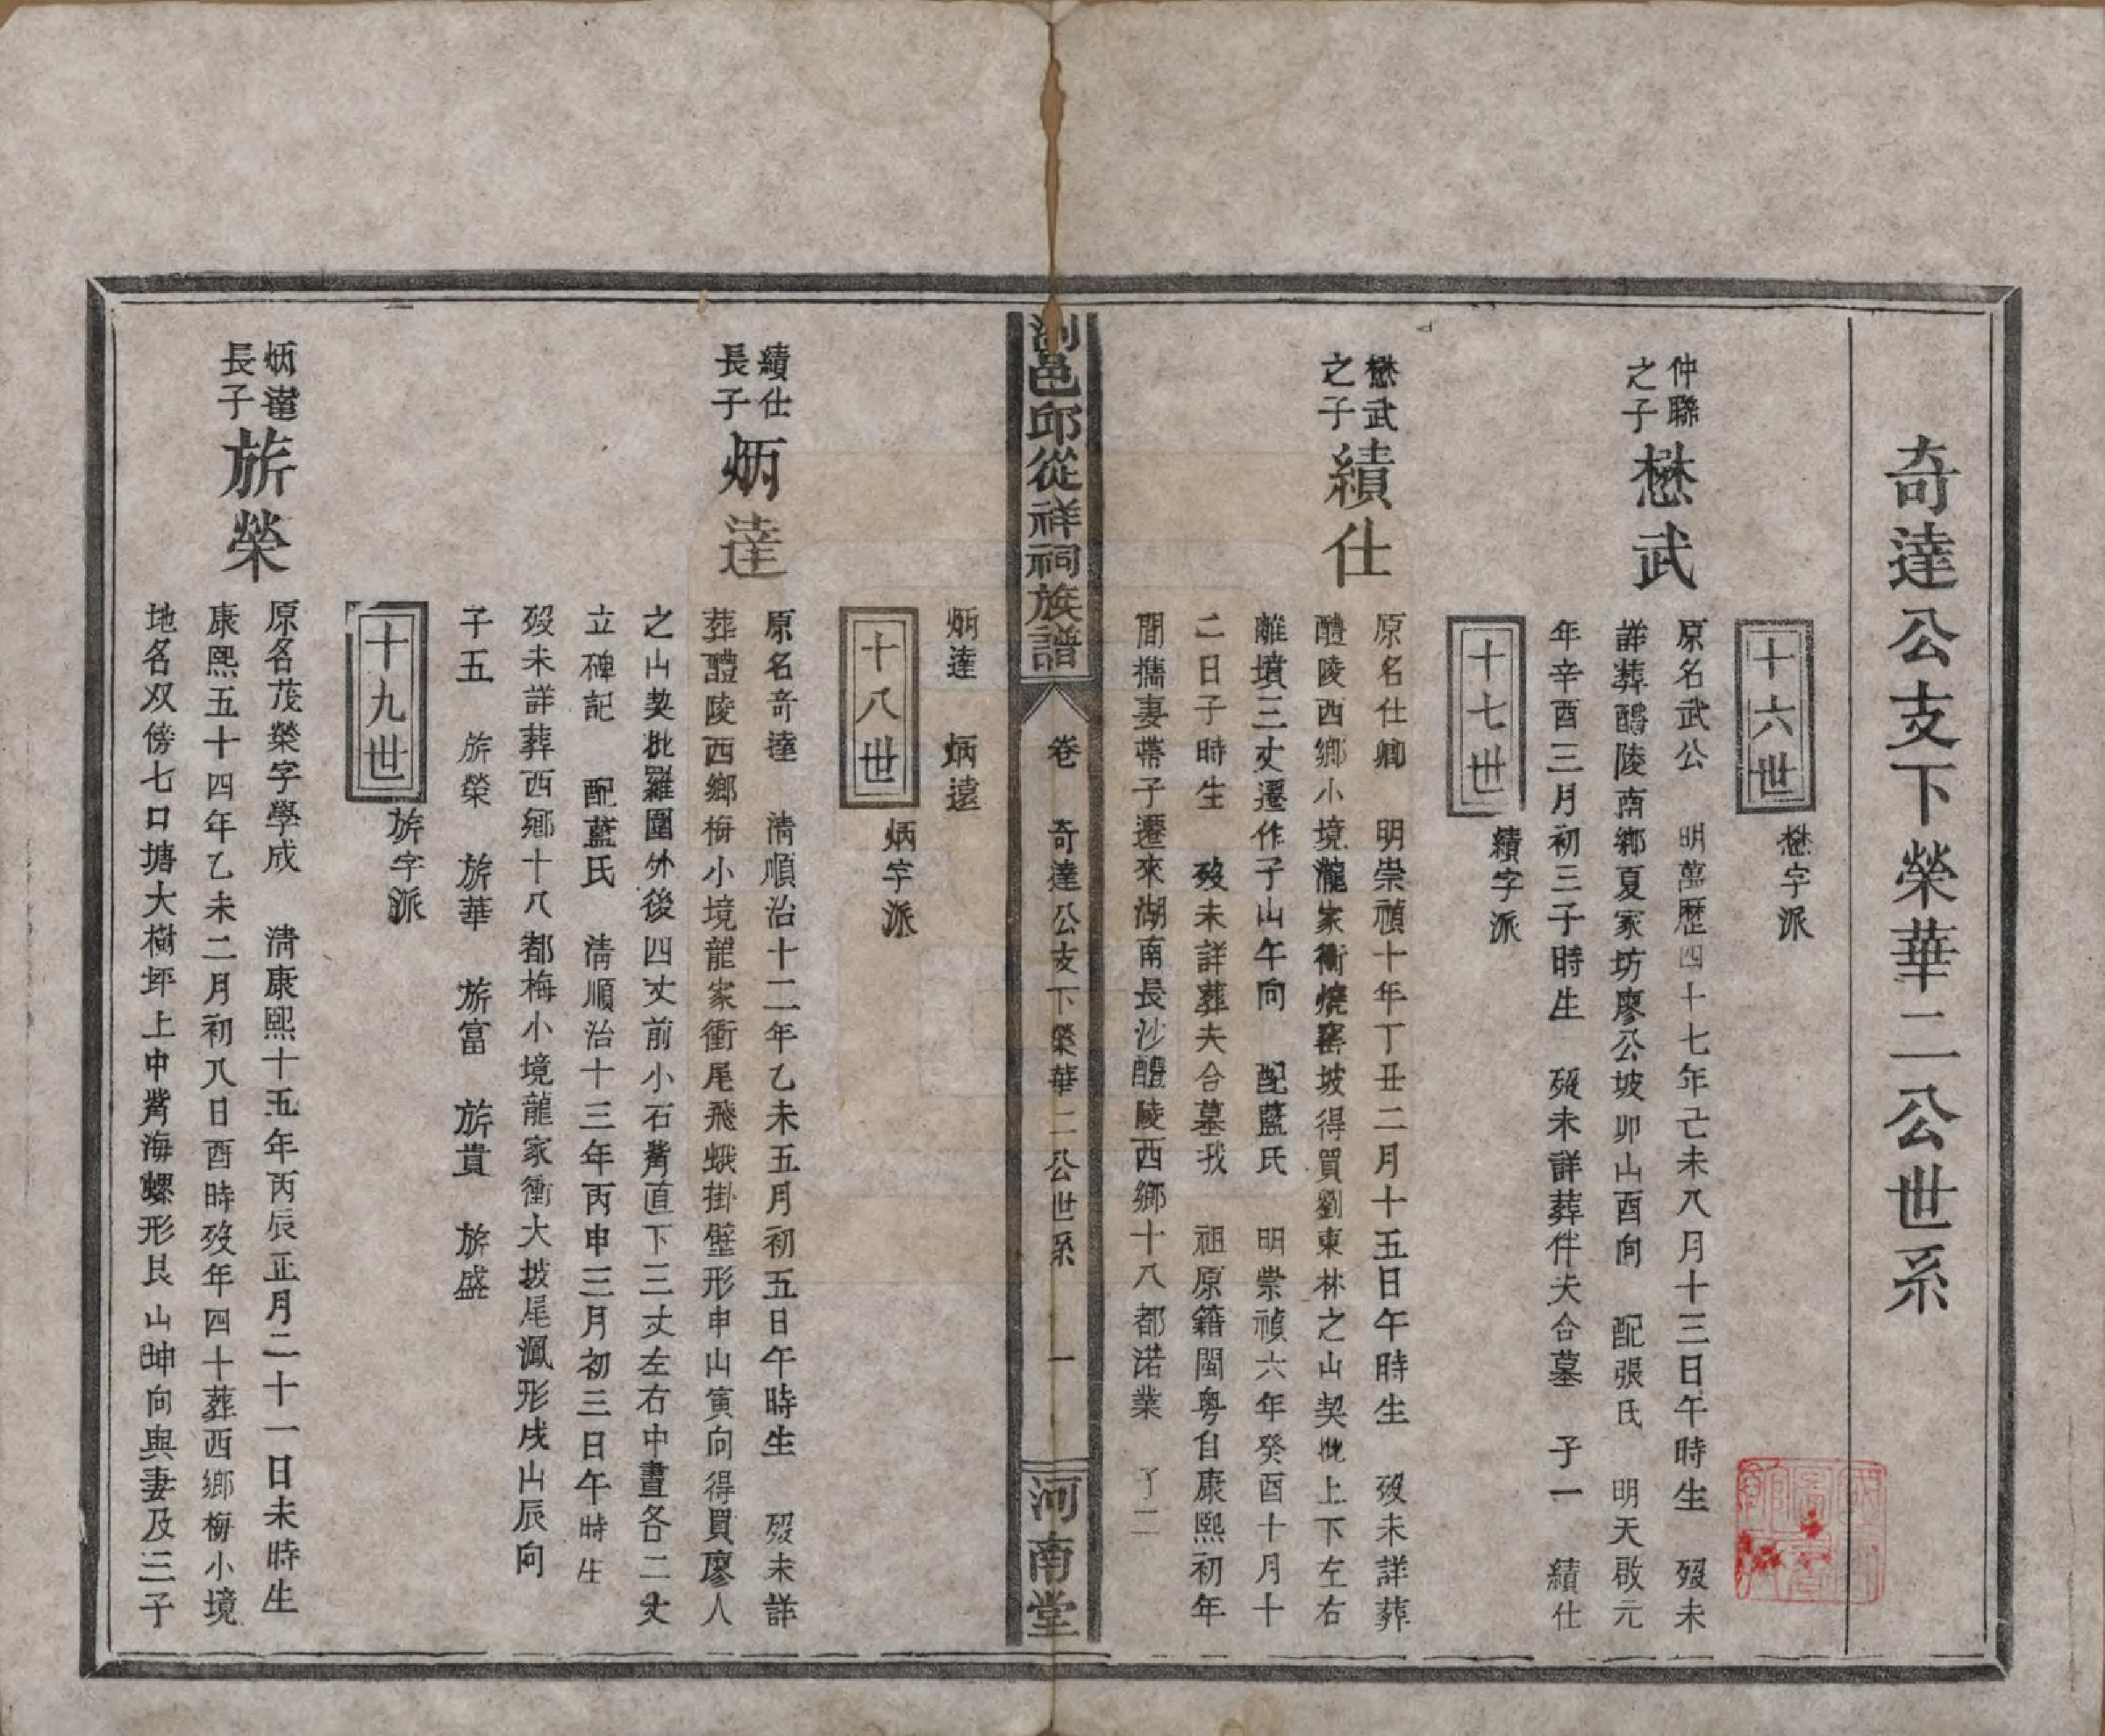 奇達公支下榮華二公世系
十六世
懋字派
仲聯
之子
懋武
原名武公　明萬歷四十七年己未八月十三日午時生　歿未
詳葬醴陵南鄉夏家坊廖公坡卯山酉向　配張氏　明天啟元
年辛酉三月初三子時生　歿未詳葬伴夫合墓　子一　績仕
十七世
績字派
懋武
之子
績仕
原名仕卿　明崇禎十年丁丑二月十五日午時生　歿未詳葬
醴陵西鄉小境瀧家衝燒窰坡得買劉東林之山契批上下左右
離墳三丈遷作子山午向　配藍氏　明崇禎六年癸酉十月十
二日子時生　歿未詳葬夫合墓我　祖原籍閩粵自康熙初年
間攜妻帶子遷來湖南長沙醴陵西鄉十八都渃業　子二
瀏邑邱從祥祠族譜
卷　奇達公支下榮華二公世系　一
河南堂
炳達　炳遠
十八世
炳字派
績仕
長子
炳達
原名奇逹　清順治十二年乙未五月初五日午時生　歿未詳
葬醴陵西鄉梅小境龍家衝尾飛蛾掛壁形申山寅向得買廖人
之山契批羅圍外後四丈前小石觜直下三丈左右中畫各二丈
立碑記　配藍氏　清順治十三年丙申三月初三日午時生
歿未詳葬西鄉十八都梅小境龍家衝大坡尾瀜形戌山辰向
子五　旂榮　旂華　旂富　旂貴　旂盛
十九世
旂字派
炳達
長子
旂榮
原名茂榮字學成　清康熙十五年丙辰正月二十一日未時生
康熙五十四年乙未二月初八日酉時歿年四十葬西鄉梅小境
地名双傍七口塘大樹坪上中觜海螺形艮山坤向與妻及三子